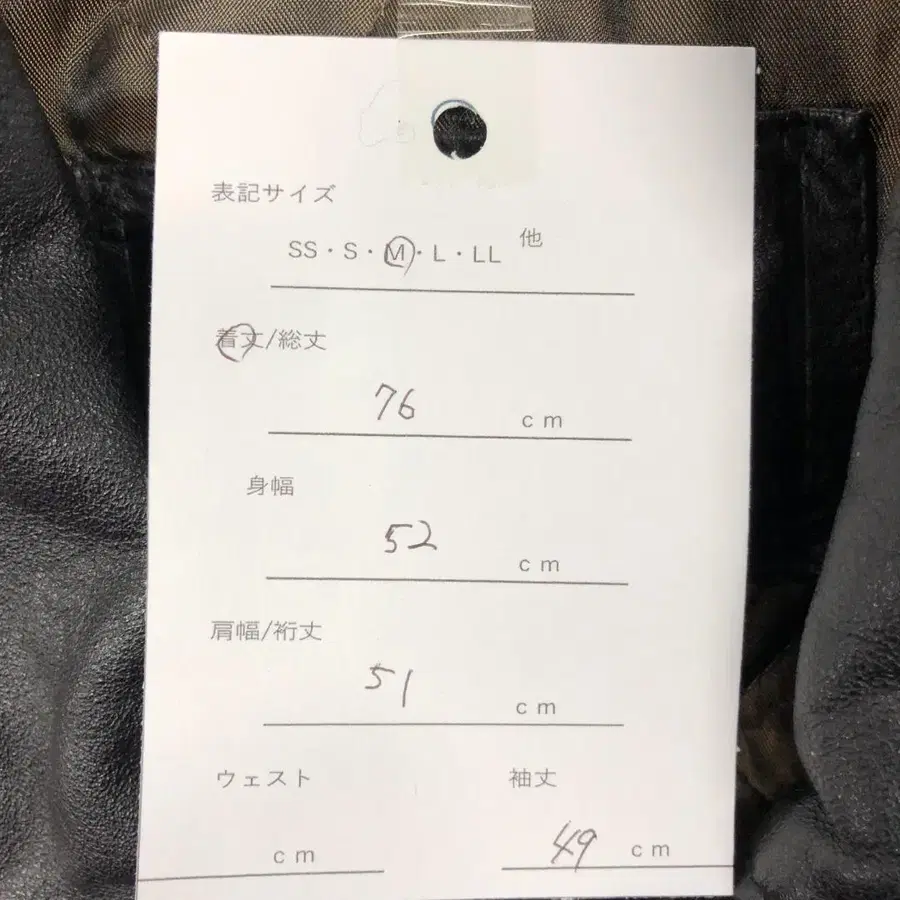 表記サイズ
SS・S・M・L・LL 他
着丈/総丈
76 cm
身幅
52 cm
肩幅/裄丈
51 cm
ウェスト 袖丈
cm 49 cm